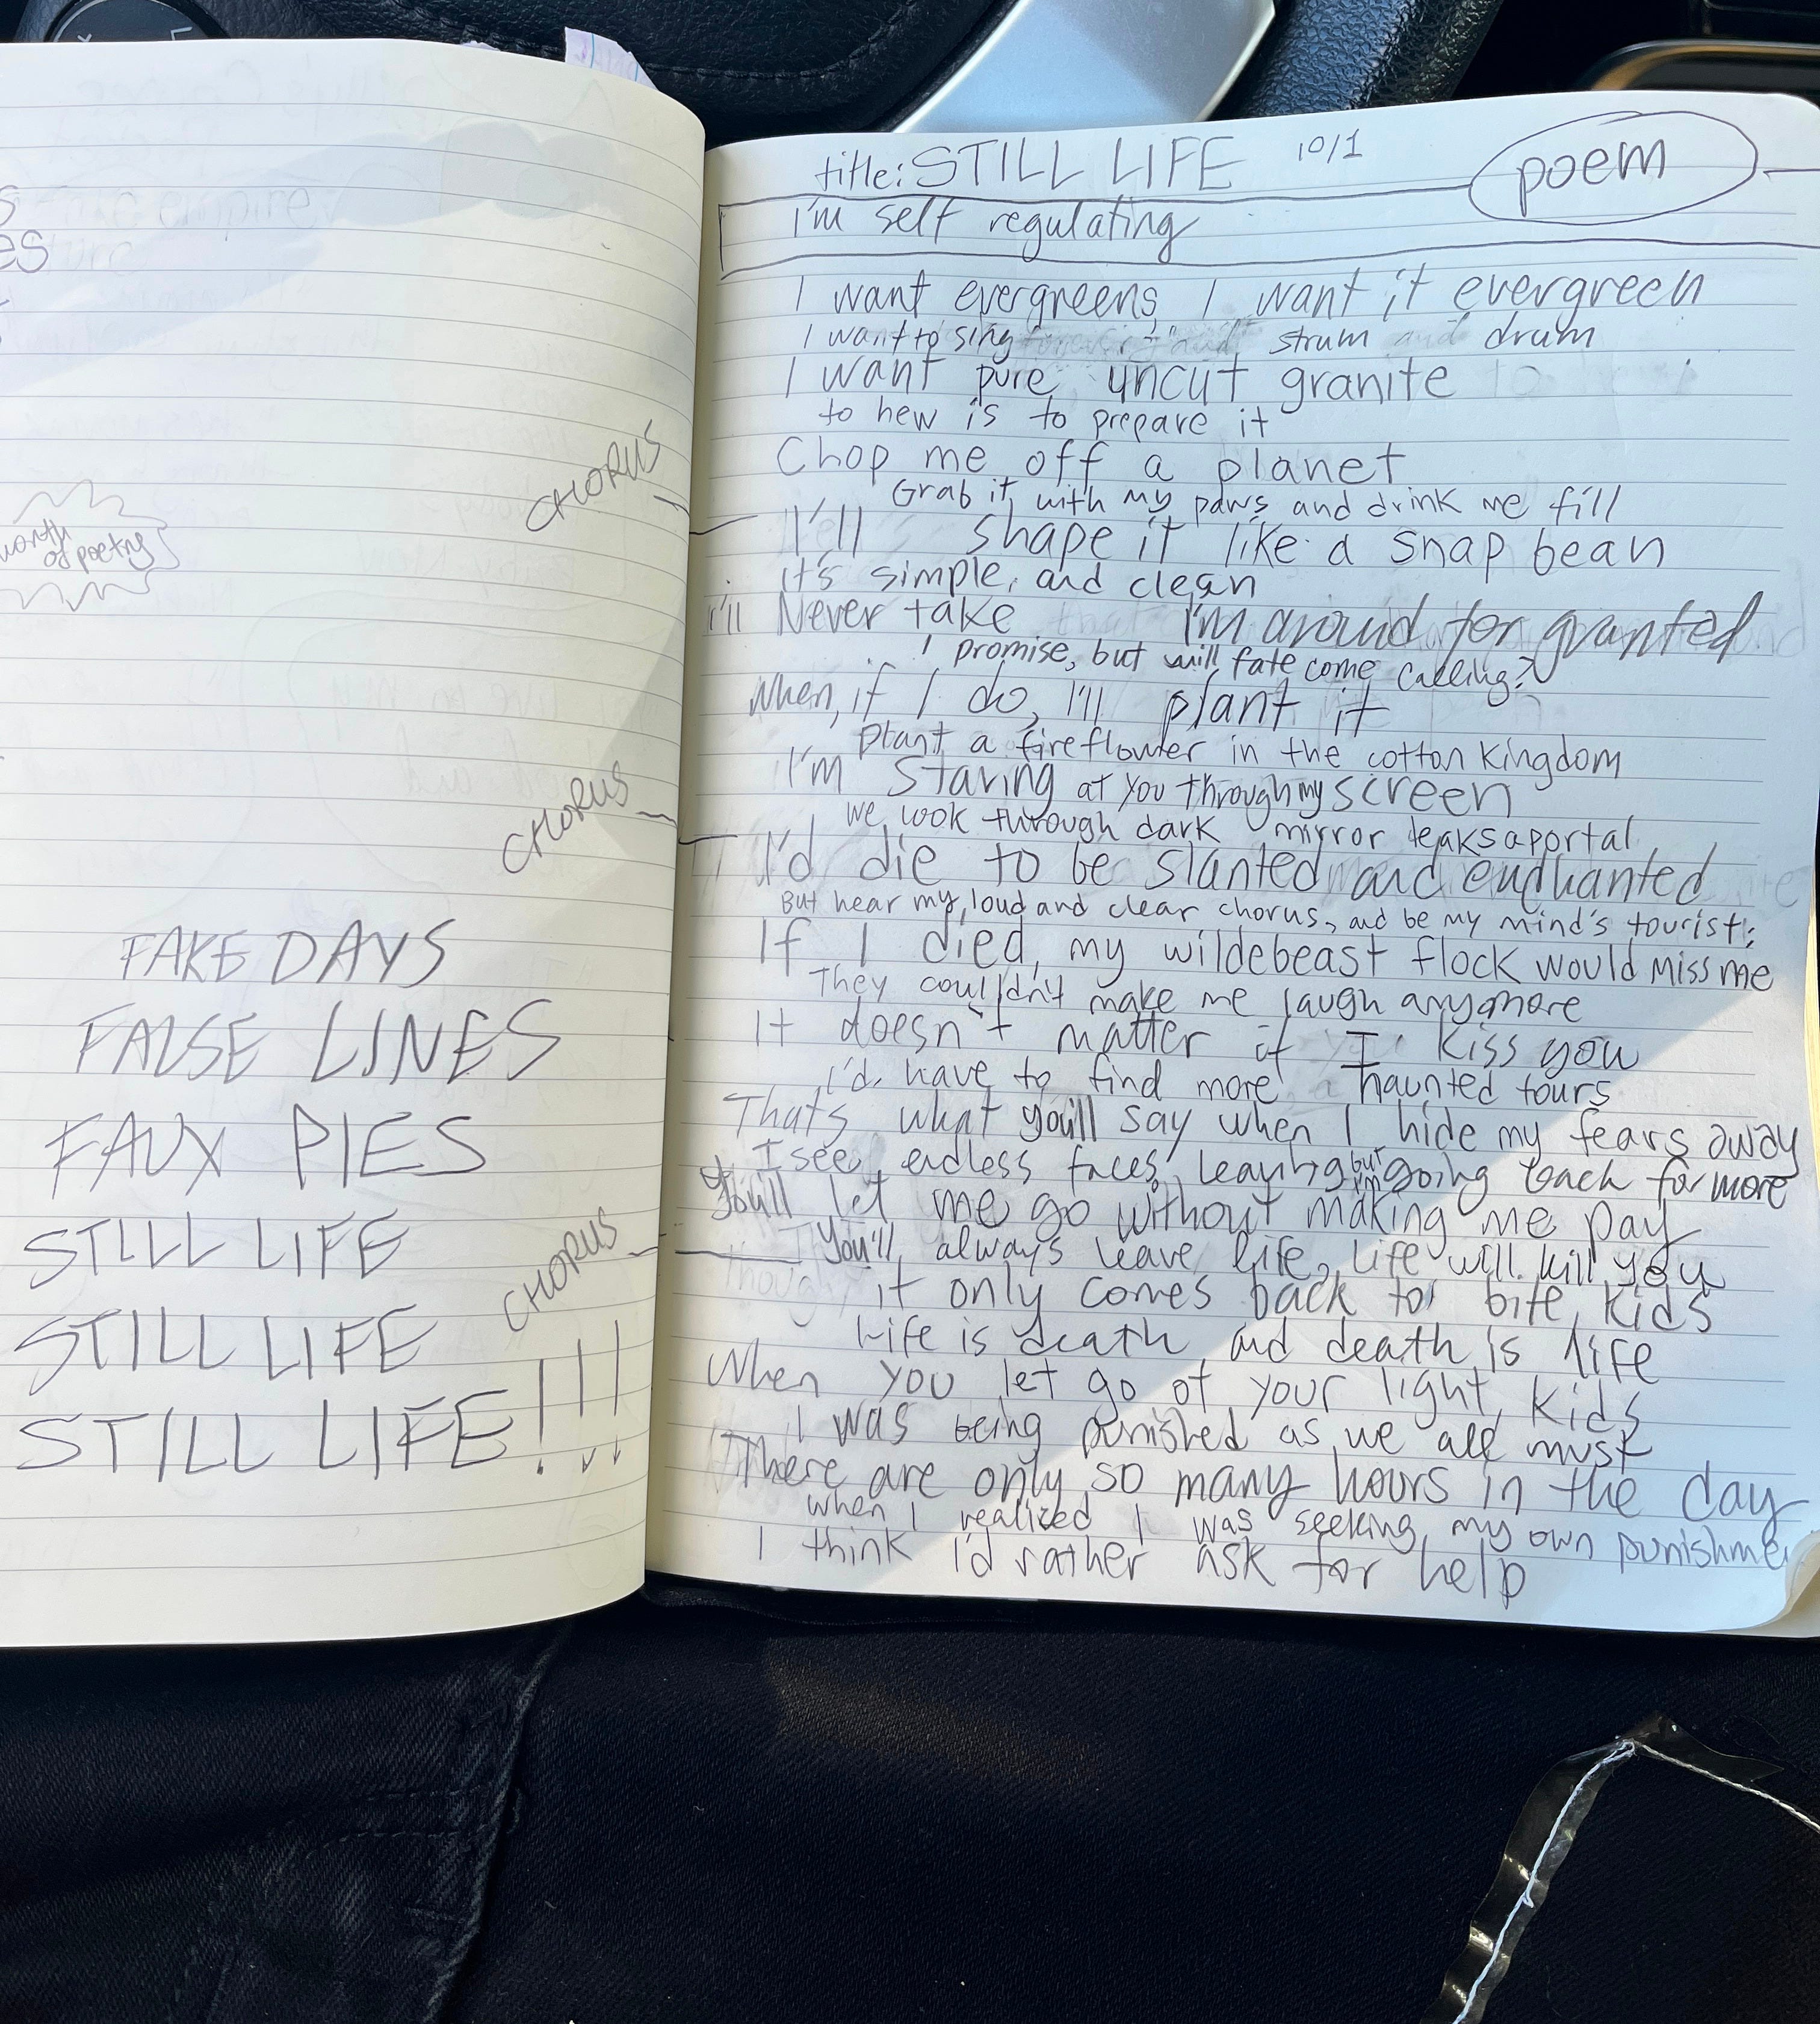 s
es
month
of poetry
CHORUS
CHORUS
FAKE DAYS
FALSE LINES
FAUX PIES
STILL LIFE
CHORUS
STILL LIFE
STILL LIFE!!!
title: STILL LIFE 10/1
poem
I'm self regulating
I want evergreens, I want it evergreen
I want to sing strum and drum
I want pure, uncut granite
to hew is to prepare it
Chop me off a planet
Grab it with my paws and drink me fill
I'll shape it like a snap bean
it's simple, and clean
I'll Never take I'm around for granted
I promise, but will fate come calling?
When, if I do, I'll plant it
Plant a fireflower in the cotton kingdom
I'm staring at you through my screen
we look through dark mirror leaks a portal
I'd die to be slanted and enchanted
But hear my, loud and clear chorus, and be my mind's tourist;
If I died, my wildebeast flock would miss me
They couldn't make me laugh anymore
It doesn't matter if I kiss you
I'd have to find more haunted tours
That's what you'll say when I hide my fears away
I see endless faces, leaving but I'm going back for more
You'll let me go without making me pay
You'll always leave life, life will kill you
it only comes back to bite, kids
Life is death and death is life
When you let go of your light, kids
I was being punished as we all must
There are only so many hours in the day
when I realized I was seeking my own punishme
I think I'd rather ask for help